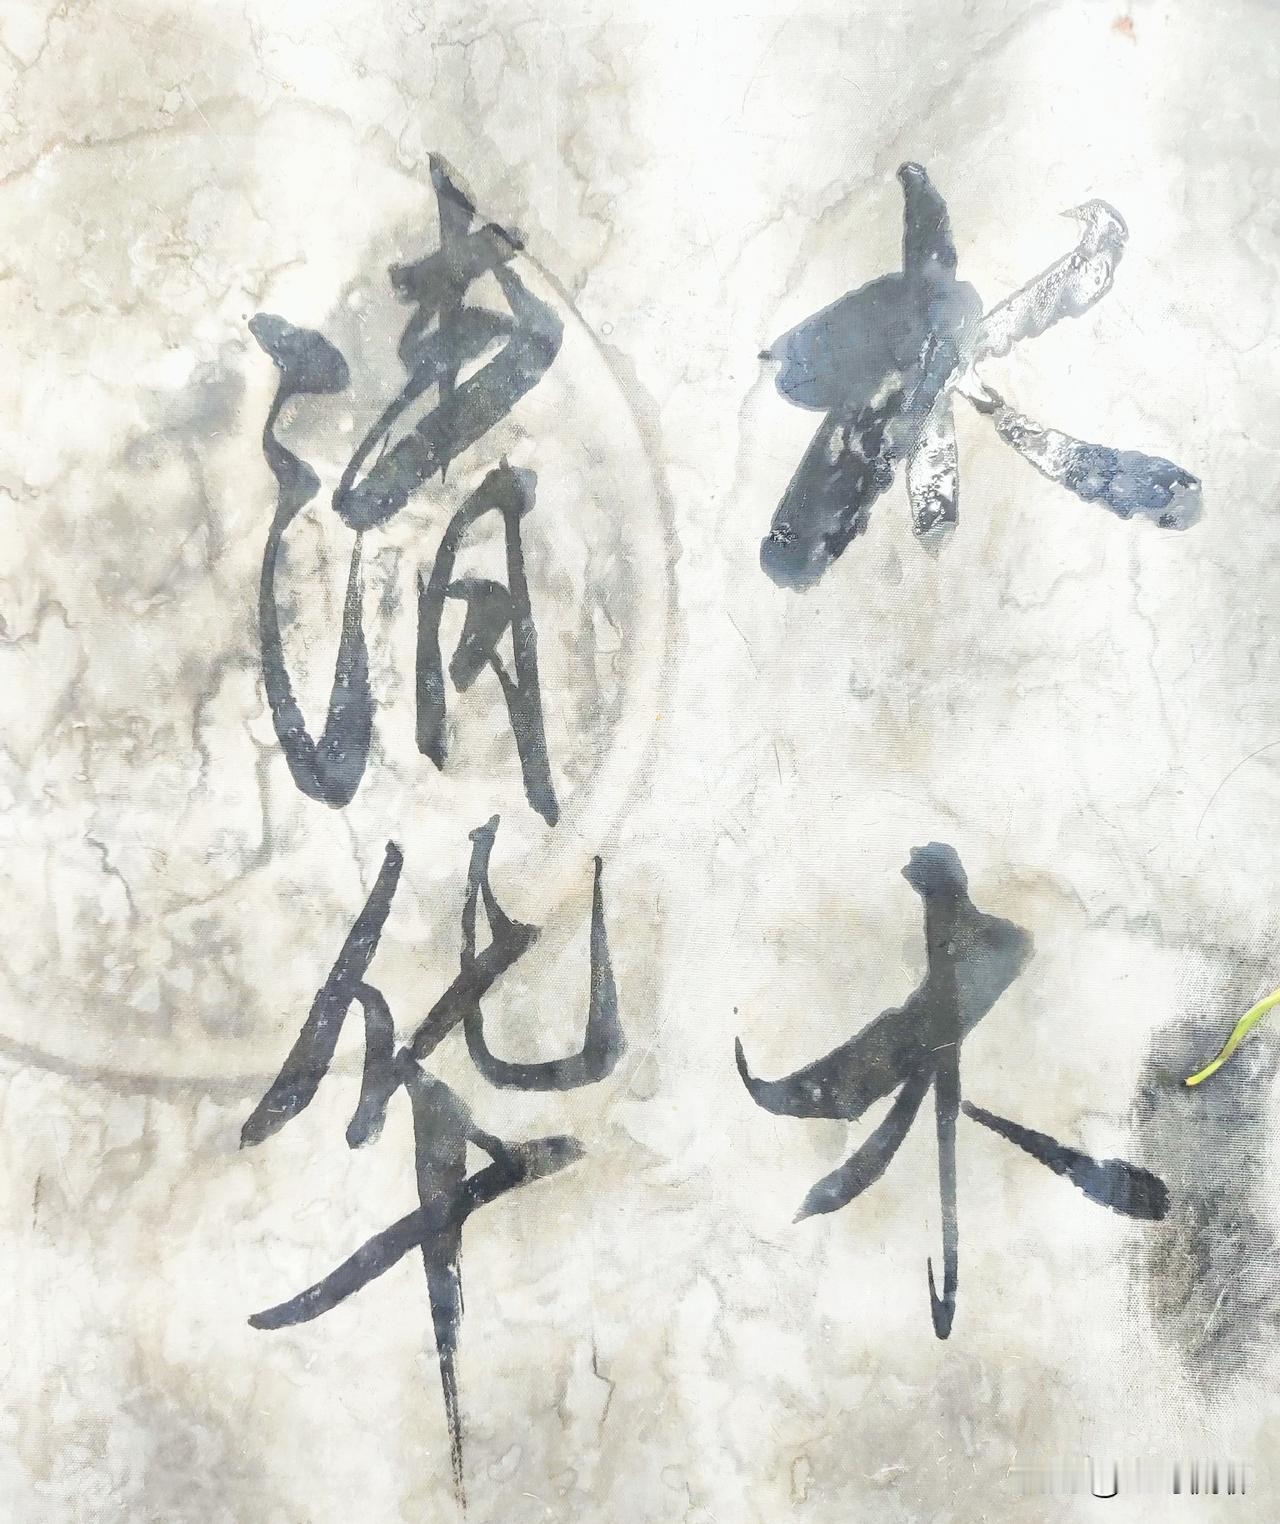 水木
清华